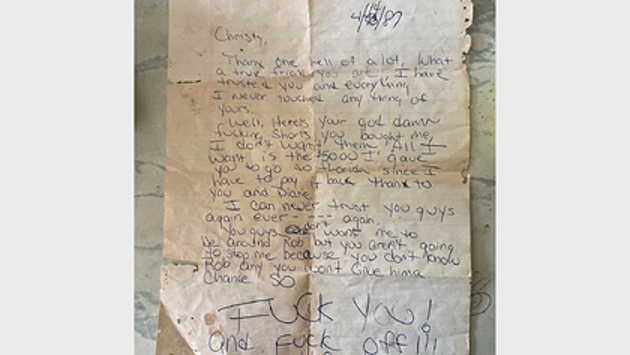 4/14/87
Christy,
Thanx one hell of a lot, What
a true friend you are, I have
trusted you and everything
I never touched any thing of
yours.
Well, Here's your god damn
fucking shorts you bought me
I don't want them, All I
want is the $5000 I gave
you to go to Florida since I
have to pay it back thanx to
you and Diane
I can never trust you guys
again ever ----- again.
You guys don't want me to
be around Rob but you aren't going
to stop me because you don't know
Rob any you won't Give him a
Chance SO
FUCK YOU!
and FUCK OFF!!!